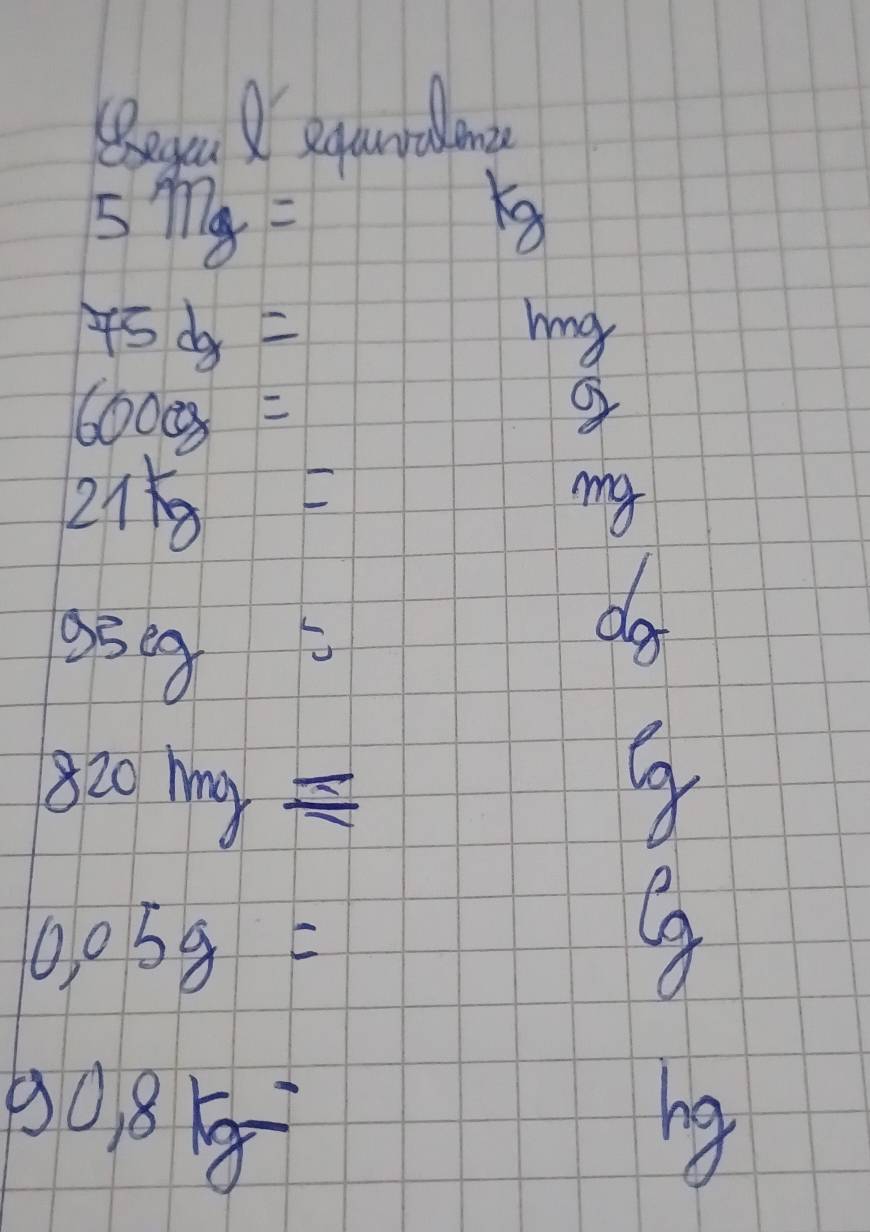 Esegui l'equivalenze
5 Mg = kg
75 dg = mg
600 cg = g
21 kg = mg
95 cg = dg
820 mg = cg
0,05 g = cg
90,8 kg = hg